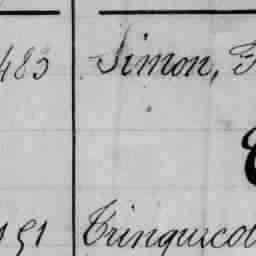 483 Simon, F
E
151 Trinquecot